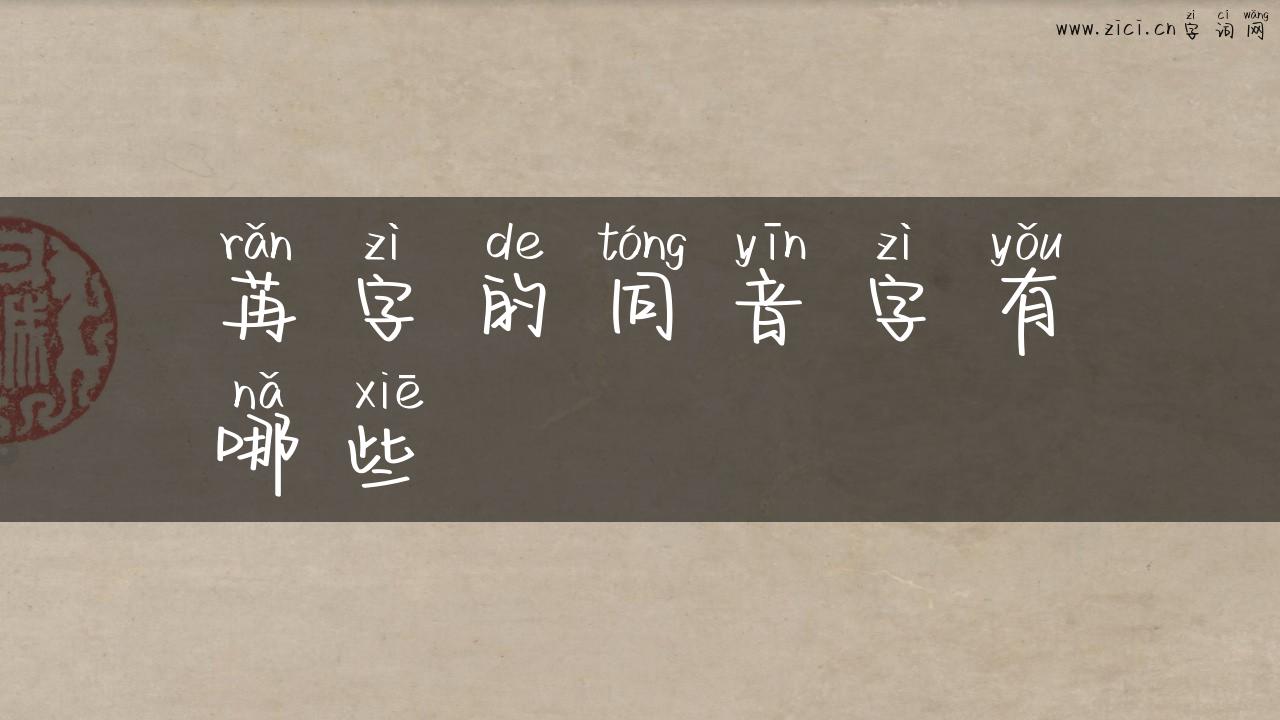 www.zici.cn
zì cí wǎng
字词网
rǎn zì de tóng yīn zì yǒu
苒字的同音字有
nǎ xiē
哪些